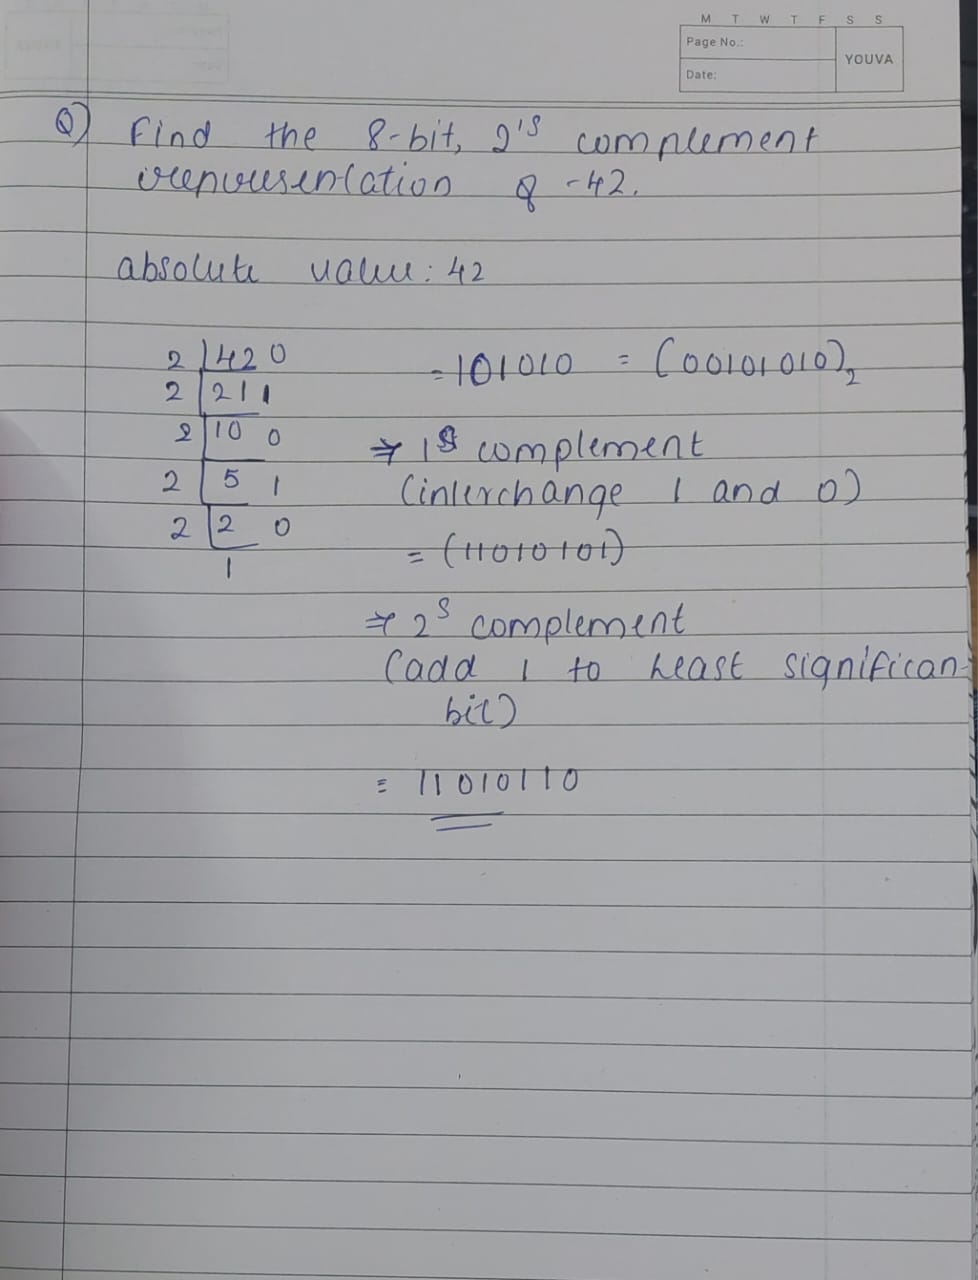 M T W T F S S
Page No.:
YOUVA
Date:
Q) Find the 8-bit, 2's complement
representation of -42.
absolute value: 42
2 42 0
2 21 1
2 10 0
2 5 1
2 2 0
1
= 101010 = (00101010)2
⇒ 1s complement
(interchange 1 and 0)
= (11010101)
⇒ 2s complement
(add 1 to least significan
bit)
= 11010110